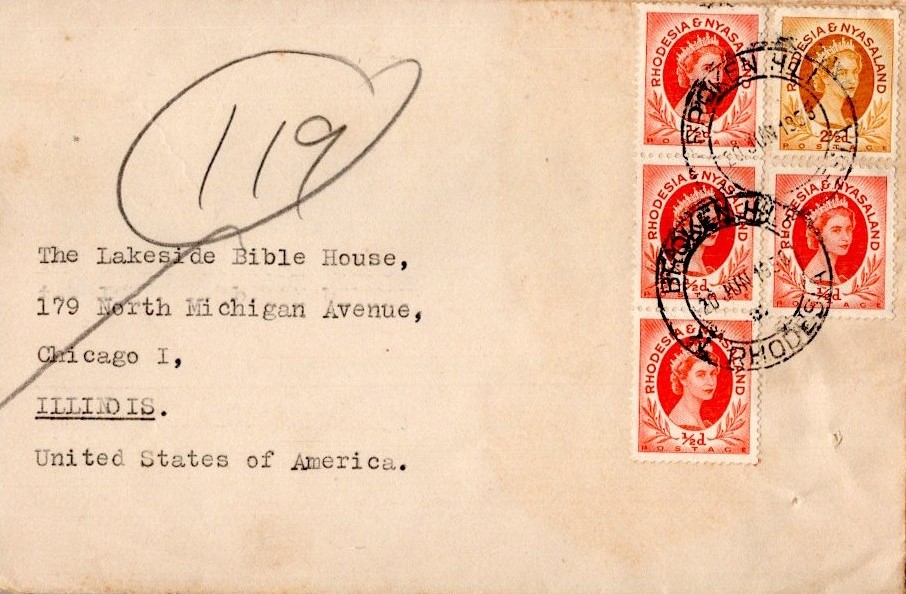 119
The Lakeside Bible House,
179 North Michigan Avenue,
Chicago I,
ILLINOIS.
United States of America.
RHODESIA & NYASALAND
½d
POSTAGE
RHODESIA & NYASALAND
2½d
POSTAGE
RHODESIA & NYASALAND
½d
POSTAGE
RHODESIA & NYASALAND
½d
POSTAGE
RHODESIA & NYASALAND
½d
POSTAGE
BROKEN HILL
20 JUN
BROKEN HILL
20 JUN
N. RHODESIA